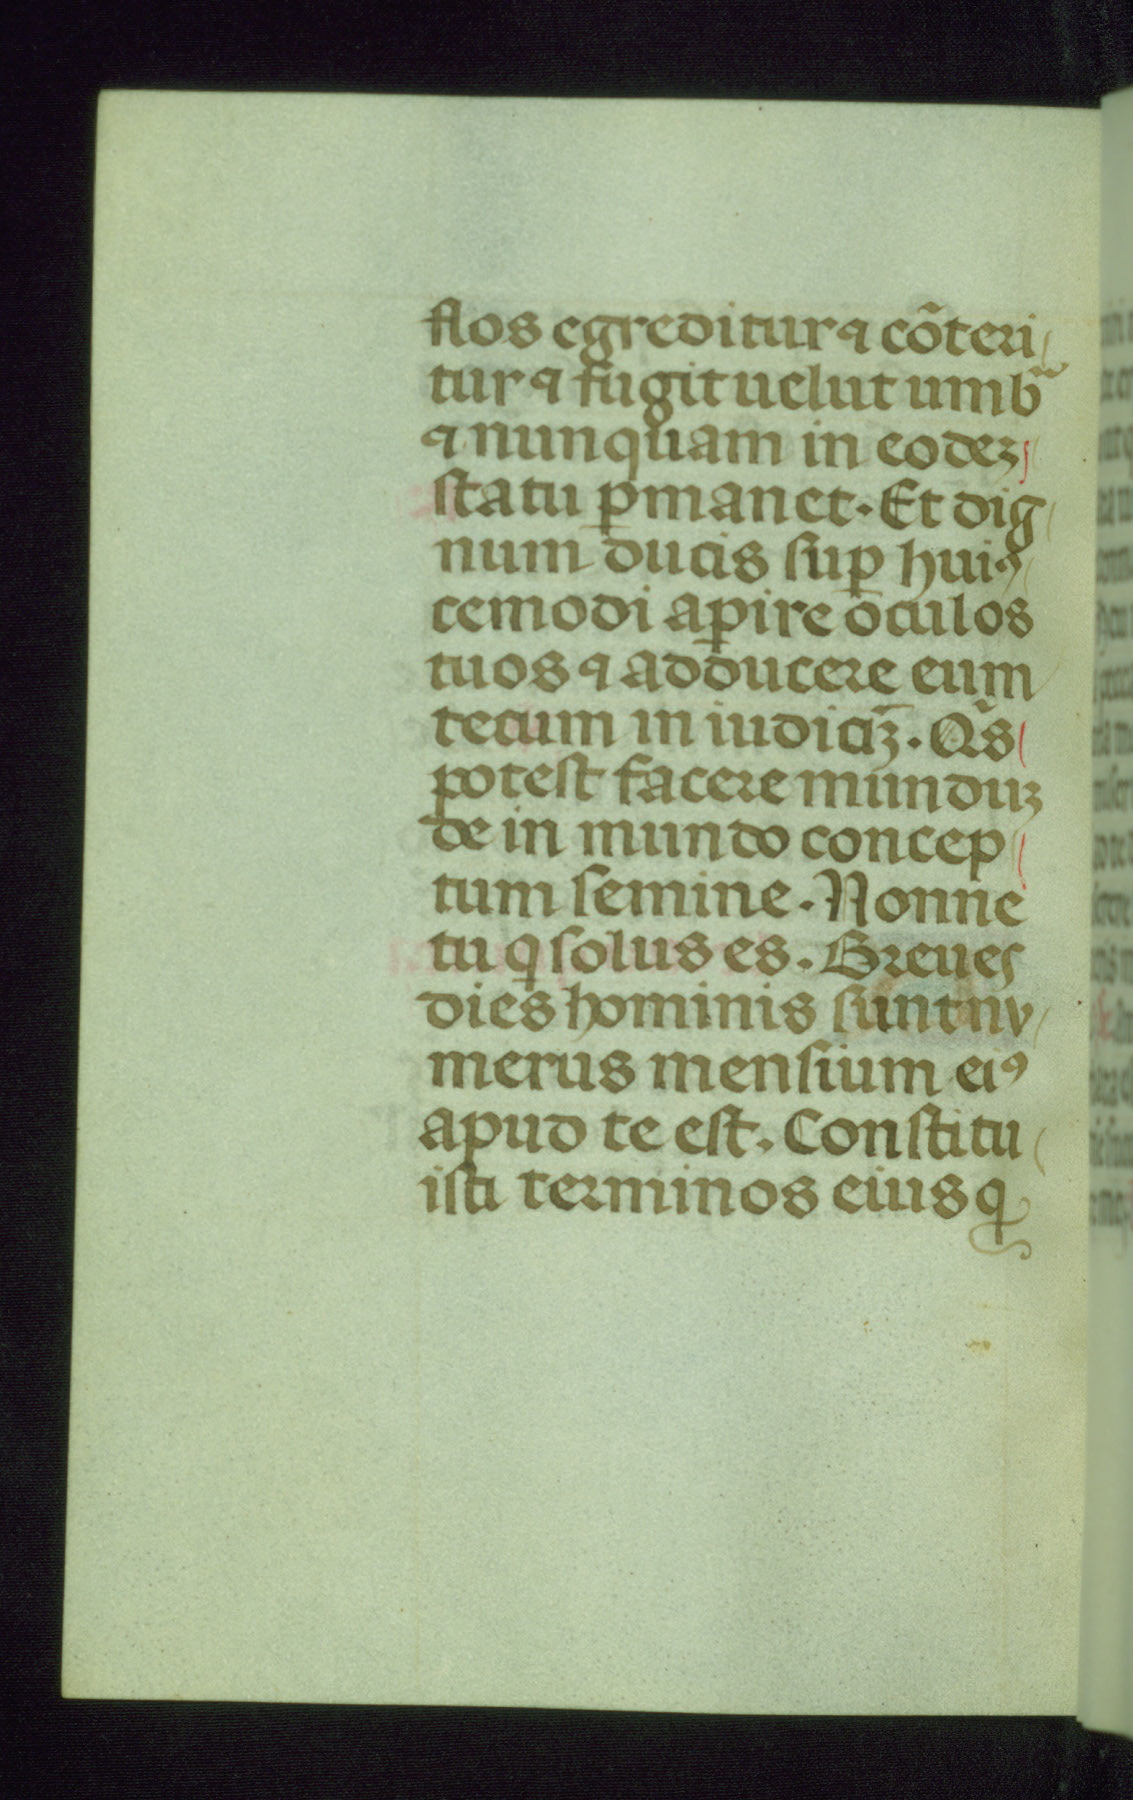 flos egreditur ⁊ cõteri
tur ⁊ fugit uelut umbᷓ
⁊ nunquam in eodeꝫ
statu ꝑmanet. Et dig
num ducis suꝑ huiꝰ
cemodi aꝑire oculos
tuos ⁊ adducere eum
tecum in iudiciꝫ. Q̃s
potest facere munduꝫ
de in mundo concep
tum semine. Nonne
tu q̇ solus es. Breues
dies hominis sunt nv
merus mensium eiꝰ
apud te est. Constitu
isti terminos eius q̇